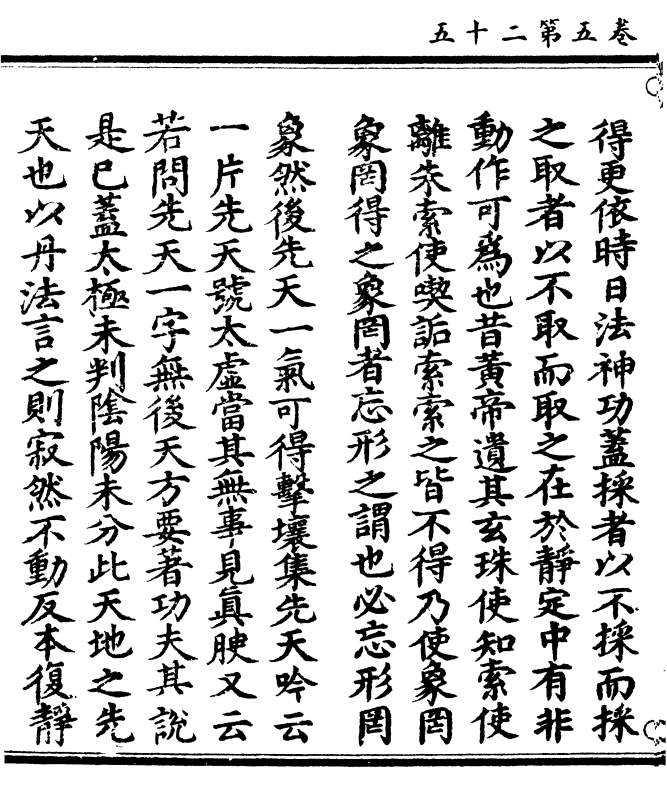 卷五第二十五
得更依時日法神功蓋採者以不採而採
之取者以不取而取之在於靜定中有非
動作可爲也昔黃帝遺其玄珠使知索使
離朱索使喫詬索索之皆不得乃使象罔
象罔得之象罔者忘形之謂也必忘形罔
象然後先天一氣可得擊壤集先天吟云
一片先天號太虛當其無事見眞腴又云
若問先天一字無後天方要著功夫其說
是已蓋太極未判陰陽未分此天地之先
天也以丹法言之則寂然不動反本復靜